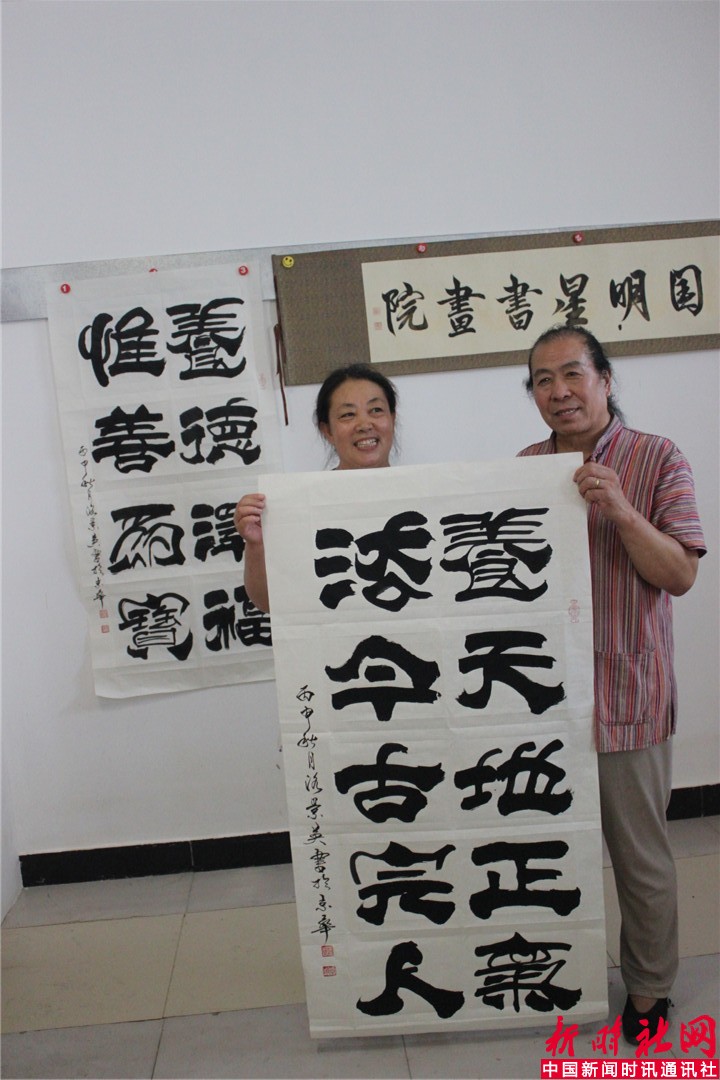 国明星書畫院
養德澤福
惟善為寶
丙申秋月洛景英書於京華
養天地正氣
法今古完人
丙申秋月洛景英書於京華
新时社网
中国新闻时讯通讯社